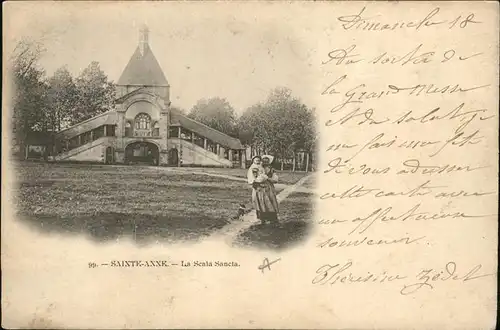 Dimanche 18
Au sortir de
la Grand Messe
et du salut je
me fais une fête
de vous adresser
cette carte avec
un affectueux
souvenir
99. – SAINTE-ANNE. – La Scala Sancta.